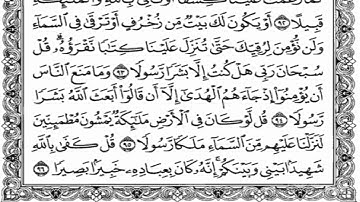 قَبِيلًا ٩٢ أَوْ يَكُونَ لَكَ بَيْتٌ مِّن زُخْرُفٍ أَوْ تَرْقَىٰ فِي السَّمَاءِ
وَلَن نُّؤْمِنَ لِرُقِيِّكَ حَتَّىٰ تُنَزِّلَ عَلَيْنَا كِتَابًا نَّقْرَؤُهُ قُلْ
سُبْحَانَ رَبِّي هَلْ كُنتُ إِلَّا بَشَرًا رَّسُولًا ٩٣ وَمَا مَنَعَ النَّاسَ
أَن يُؤْمِنُوا إِذْ جَاءَهُمُ الْهُدَىٰ إِلَّا أَن قَالُوا أَبَعَثَ اللَّهُ بَشَرًا
رَّسُولًا ٩٤ قُل لَّوْ كَانَ فِي الْأَرْضِ مَلَائِكَةٌ يَمْشُونَ مُطْمَئِنِّينَ
لَنَزَّلْنَا عَلَيْهِم مِّنَ السَّمَاءِ مَلَكًا رَّسُولًا ٩٥ قُلْ كَفَىٰ بِاللَّهِ
شَهِيدًا بَيْنِي وَبَيْنَكُمْ إِنَّهُ كَانَ بِعِبَادِهِ خَبِيرًا بَصِيرًا ٩٦